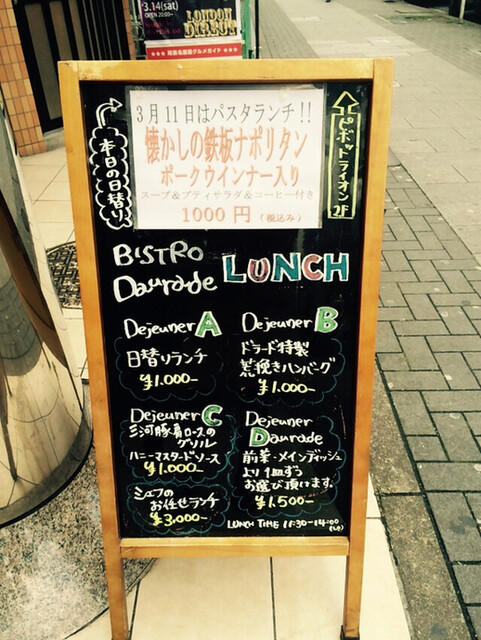 3.14(sat)
OPEN 20:00~
LONDON
DIRECT
3月11日はパスタランチ!!
懐かしの鉄板ナポリタン
ポークウインナー入り
スープ&プティサラダ&コーヒー付き
1000円(税込み)
本日の日替り
ピボットライオン2F
BISTRO
Daurade
LUNCH
Dejeuner A
日替りランチ
¥1.000-
Dejeuner B
ドラード特製
荒挽きハンバーグ
¥1.000-
Dejeuner C
三河豚肩ロースの
グリル
ハニーマスタードソース
¥1.000-
Dejeuner
Daurade
前菜・メインディッシュ
より1皿ずつ
お選び頂けます。
¥1.500-
シェフの
お任せランチ
¥3.000-
LUNCH TIME 11:30-14:00